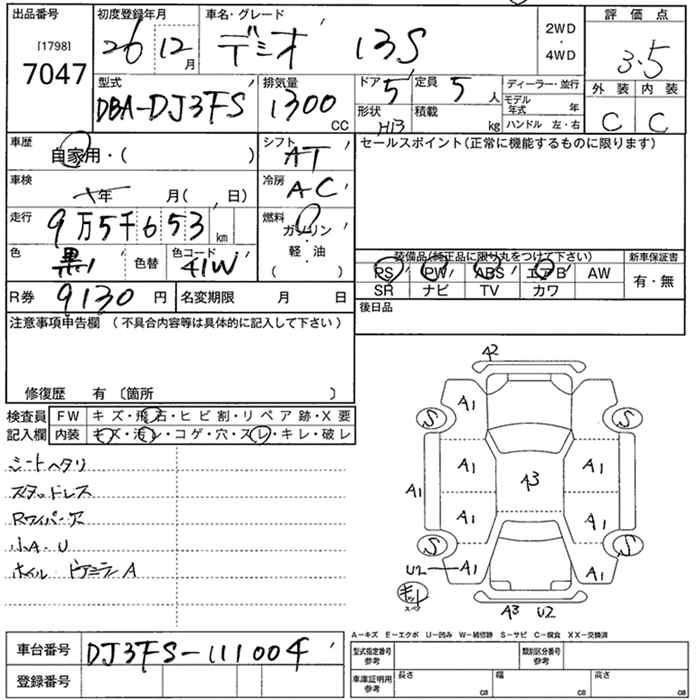 出品番号 初度登録年月 車名・グレード 2WD・4WD 評価点
[1798] 7047 26 12月 デミオ 13S 3.5
型式 DBA-DJ3FS 排気量 1300 CC
ドア 5 定員 5人 ディーラー・並行 外装 内装
形状 H13 積載 kg モデル年式 年 C C
ハンドル 左・右
車歴 自家用・( ) シフト AT セールスポイント(正常に機能するものに限ります)
車検 年 月( 、 日) 冷房 AC
走行 9万5千653 km 燃料 ガソリン
色 黒 色替 色コード 41W 軽・油 ( ・ )
装備品(純正品に限り丸をつけて下さい) 新車保証書
PS PW ABS エアB AW 有・無
SR ナビ TV カワ
R券 9130円 名変期限 月 日 後日品
注意事項申告欄 (不具合内容等は具体的に記入して下さい)
修復歴 有 〔箇所 〕
検査員 FW キズ・飛石・ヒビ割・リペア跡・X要
記入欄 内装 キズ・汚レ・コゲ・穴・スレ・キレ・破レ
シートヘタリ
スタッドレス
Rワイパー欠
小A.U
ホイル ドアミラーA
A2
A1
S S
A1 A1
A3
A1 A1
A1 A1
S S
U2 A1 A1
キッレ
A3 U2
A-キズ E-エクボ U-凹み W-補修跡 S-サビ C-腐食 XX-交換済
車台番号 DJ3FS-111004
型式指定番号 参考 類別区分番号 参考
登録番号 車庫証明用 参考 長さ cm 幅 cm 高さ cm